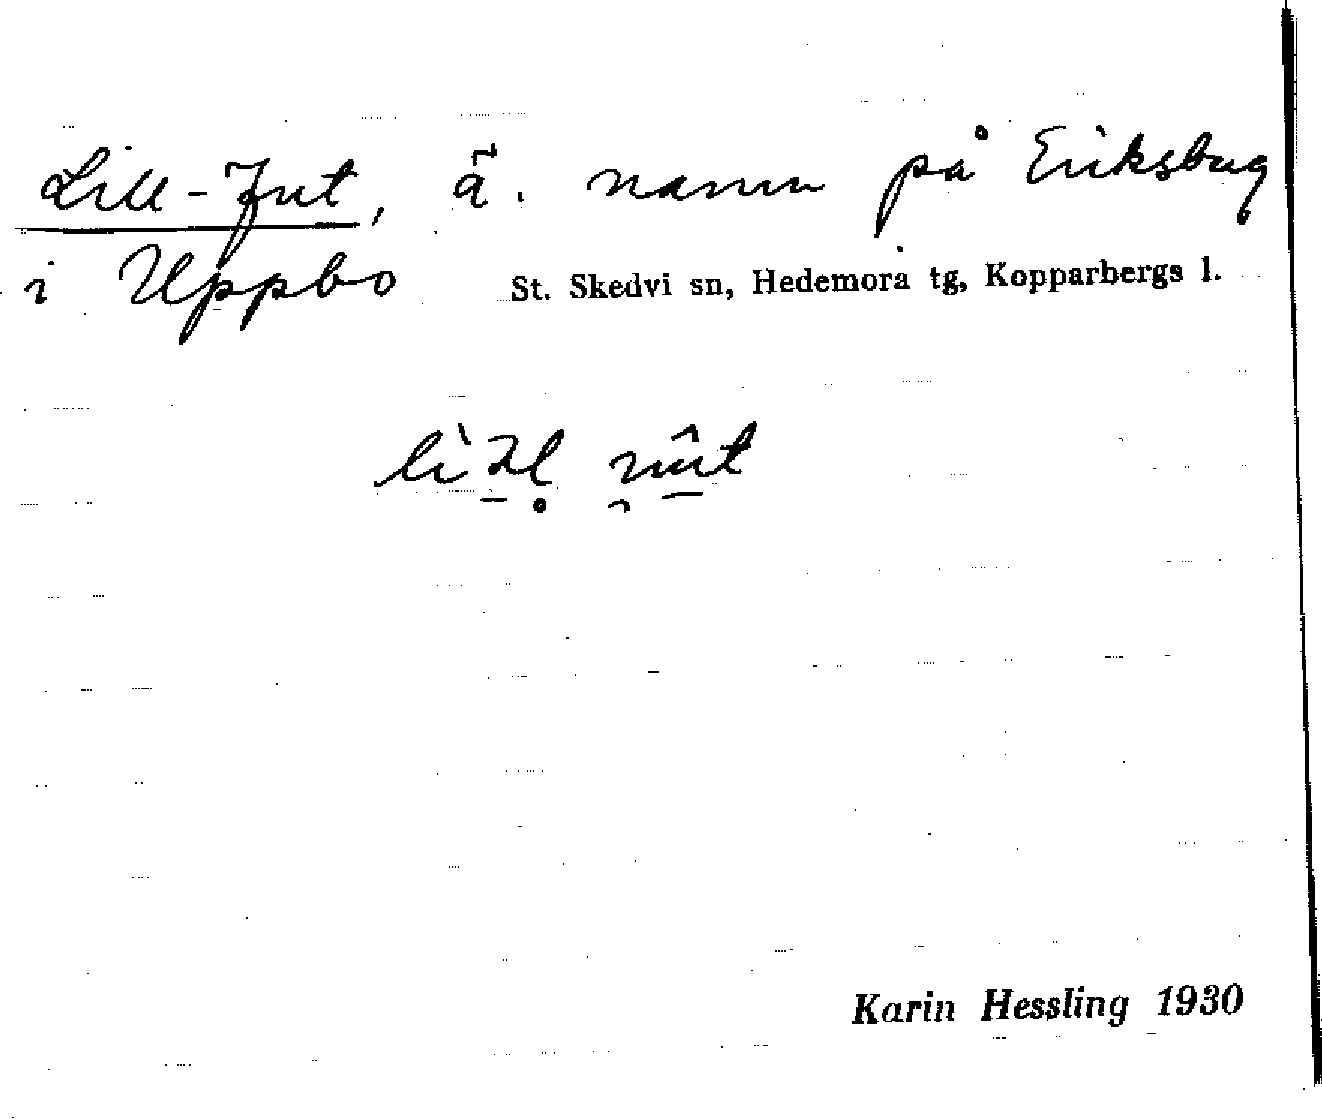 Lill-Jut, ä. namn på Eriksberg
i Uppbo St. Skedvi sn, Hedemora tg, Kopparbergs l.
Karin Hessling 1930